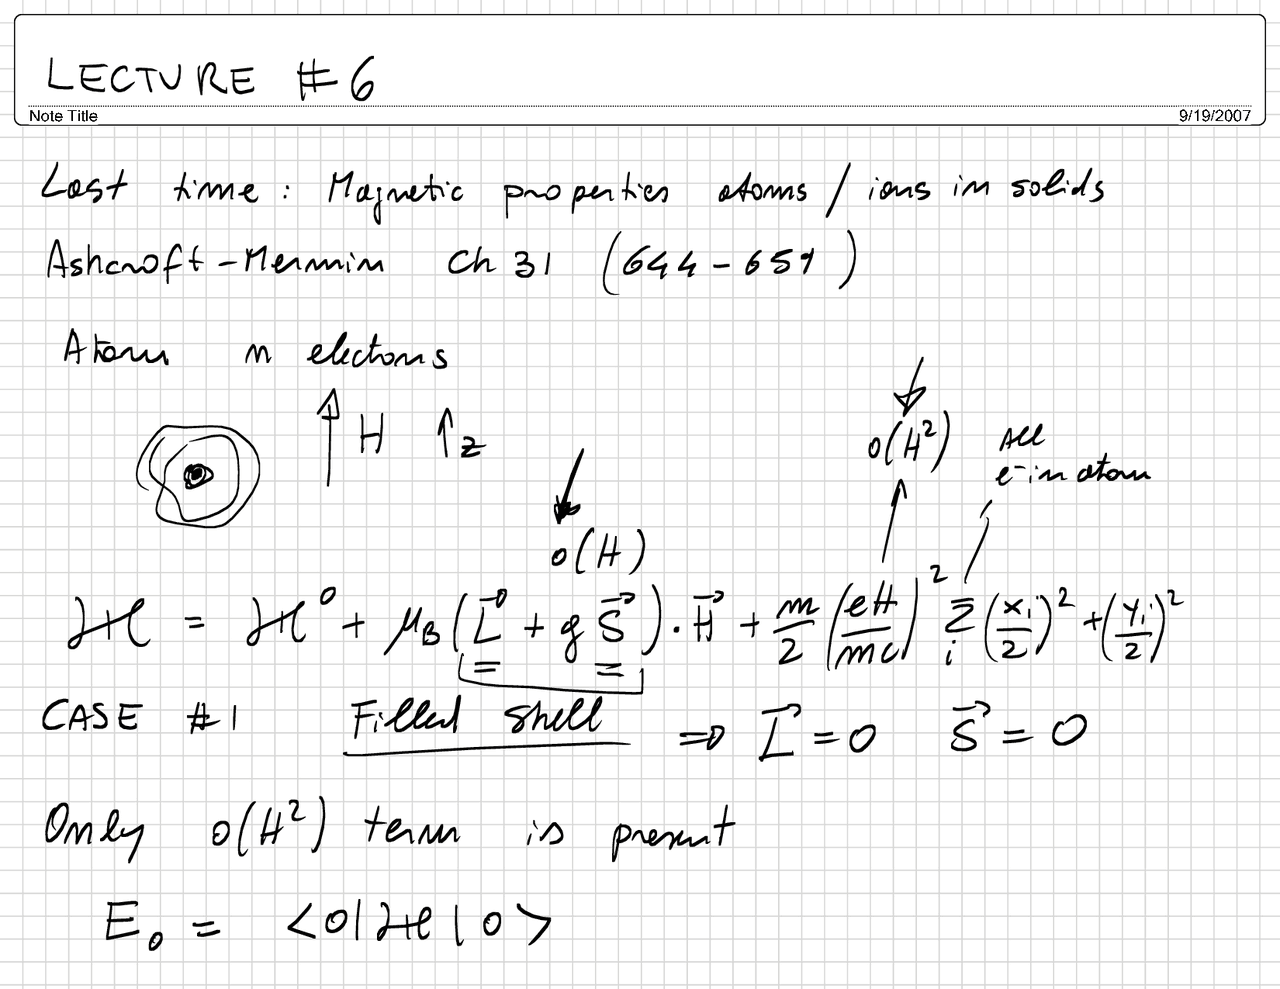 LECTURE #6
Note Title 9/19/2007
Last time: Magnetic properties atoms / ions in solids
Ashcroft-Mermin Ch 31 (644-659)
Atom n electons
H z
O(H²) All
e⁻ in atom
O(H)
ℋ = ℋ⁰ + μ_B (L⃗ + g S⃗) · H⃗ + m/2 (eH/mc)² Σ_i (x_i/2)² + (y_i/2)²
CASE #1 Filled shell ⇒ L⃗ = 0 S⃗ = 0
Only O(H²) term is present
E₀ = <0|ℋ|0>